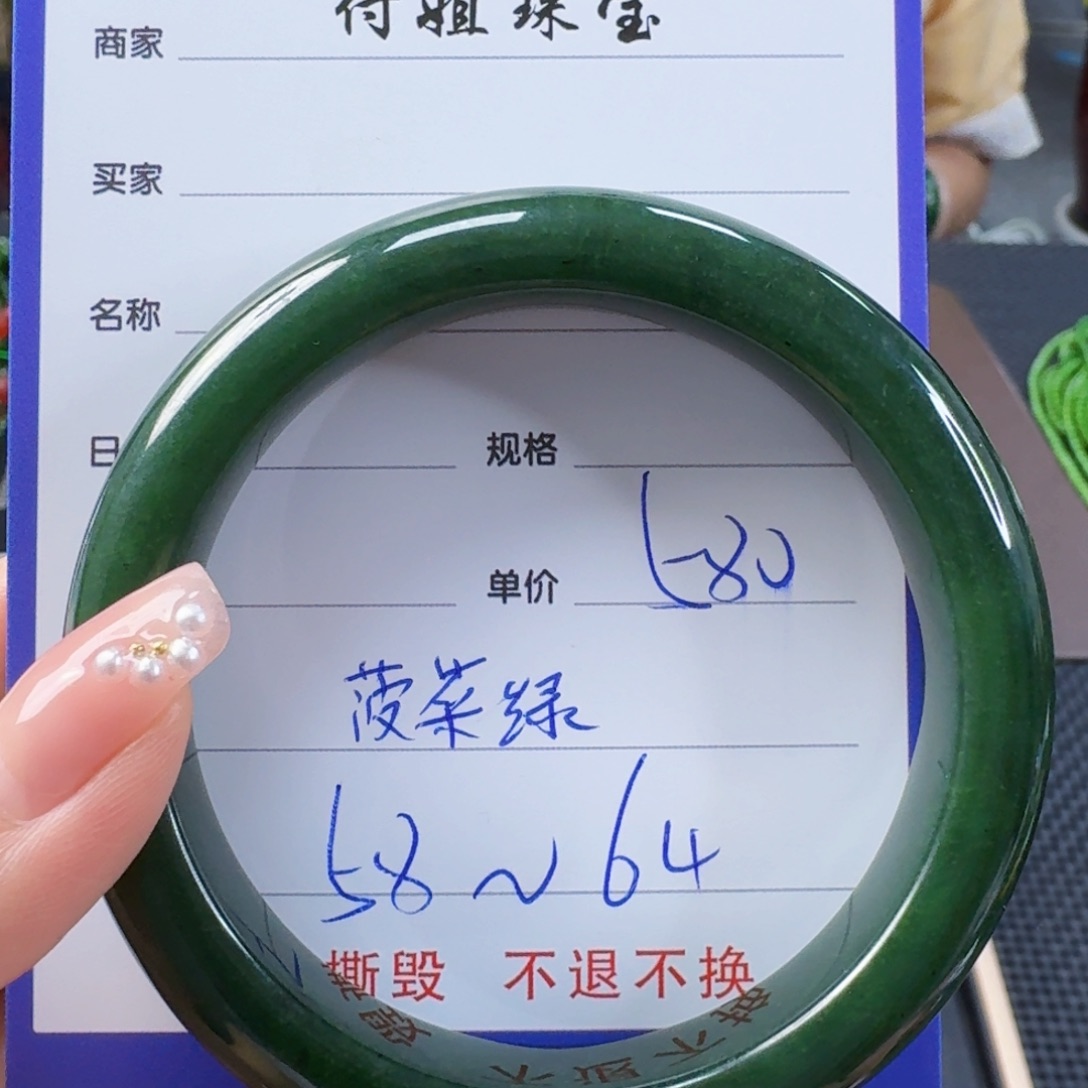 商家 付姐珠宝
买家
名称
日
规格
单价 580
菠菜绿
58~64
撕毁 不退不换